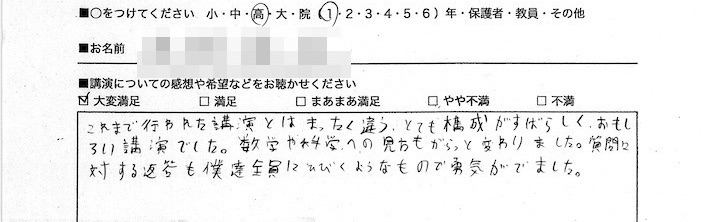 ■○をつけてください 小・中・高・大・院（1・2・3・4・5・6）年・保護者・教員・その他
■お名前
■講演についての感想や希望などをお聴かせください
☑ 大変満足 □ 満足 □ まあまあ満足 □ やや不満 □ 不満
これまで行われた講演とはまったく違う、とても構成がすばらしく、おもし
ろい講演でした。数学や科学への見方もがらっと変わりました。質問に
対する返答も僕達全員にひびくようなもので勇気がでました。